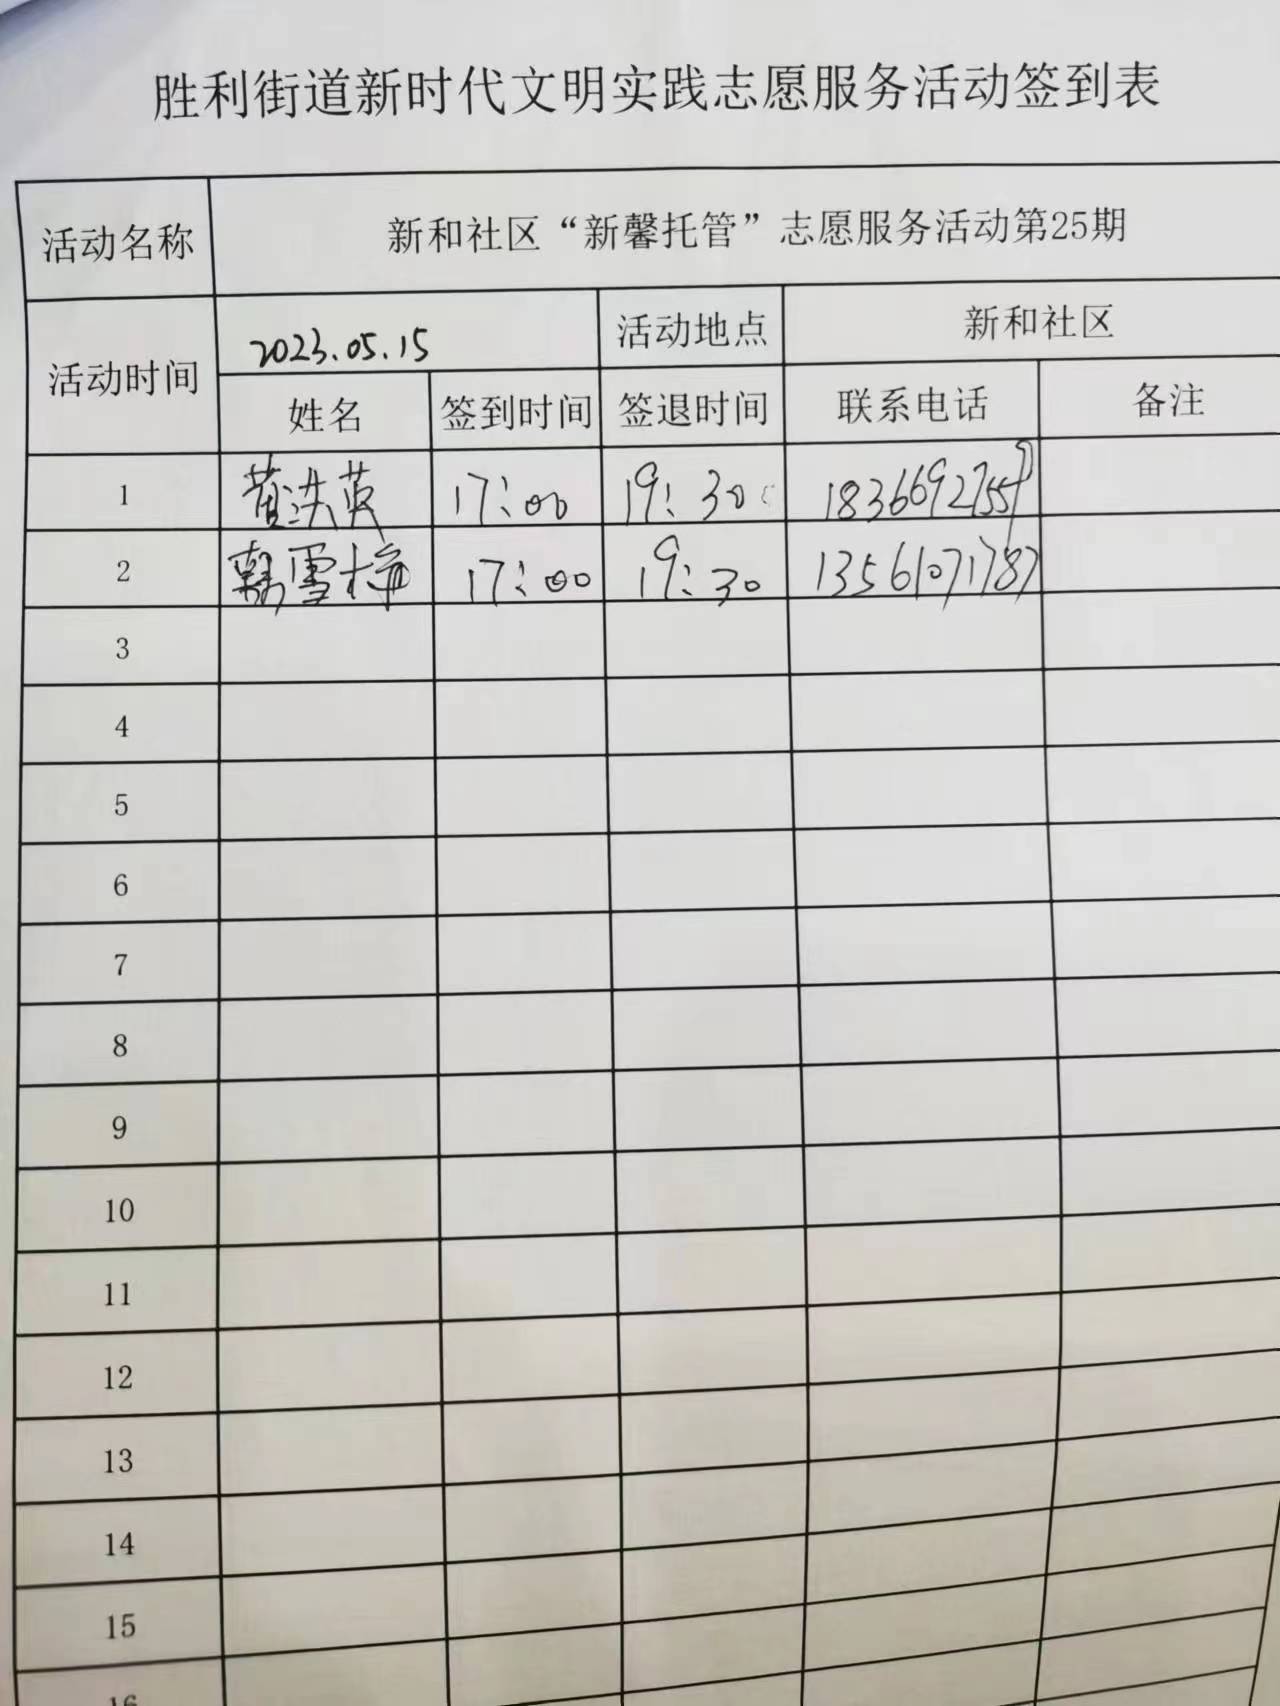 胜利街道新时代文明实践志愿服务活动签到表
活动名称 新和社区“新馨托管”志愿服务活动第25期
活动时间 2023.05.15 活动地点 新和社区
姓名 签到时间 签退时间 联系电话 备注
1 黄洪英 17:00 19:30 18366927559
2 韩雪梅 17:00 19:30 13561071787
3
4
5
6
7
8
9
10
11
12
13
14
15
16